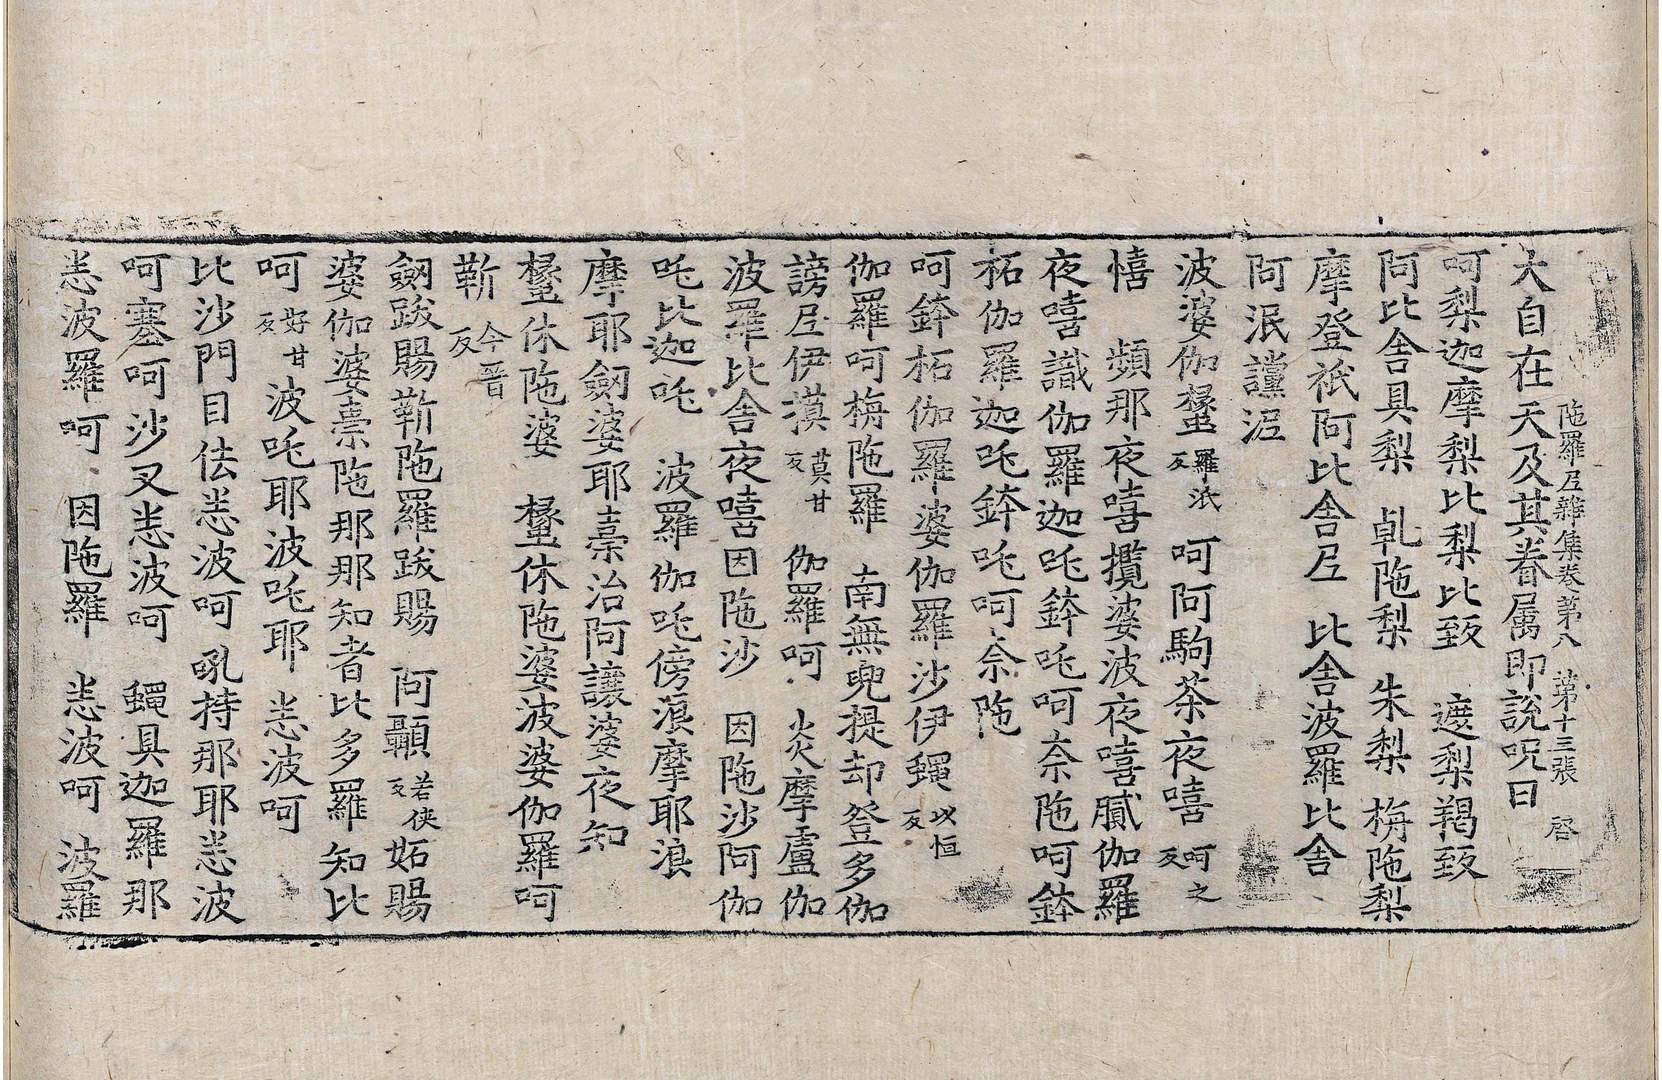 陁羅尼雜集卷第八 第十三張 啓
大自在天及其眷属即說呪曰
呵梨迦摩梨比梨比致 遮梨羯致
阿比舍具梨 乹陁梨 朱梨 栴陁梨
摩登祇阿比舍尼 比舍波羅比舍
阿泯讜泥
波婆伽𧔧羅泜反 呵阿駒茶夜嘻呵之反
憘 頻那夜嘻攬婆波夜嘻膩伽羅
夜嘻識伽羅迦吒鉢吒呵奈陁呵鉢
柘伽羅迦吒鉢吒呵奈陁
呵鉢柘伽羅婆伽羅沙伊蠅以恒反
伽羅呵栴陁羅 南無兜提却登多伽
謗尼伊摸莫甘反 伽羅呵 炎摩盧伽
波羅比舍夜嘻因陁沙 因陁沙阿伽
吒比迦吒 波羅伽吒傍浪摩耶浪
摩耶劒婆耶槖治阿讓婆夜知
𧔧休陁婆 𧔧休陁婆波婆伽羅呵
靳今晉反
劒跋賜靳陁羅跋賜 阿顳若俠反妬賜
婆伽婆槖陁那那知者比多羅知比
呵好甘反波吒耶波吒耶 恙波呵
比沙門目佉恙波呵吼持那耶恙波
呵塞呵沙叉恙波呵 蠅具迦羅那
恙波羅呵 因陁羅 恙波呵 波羅